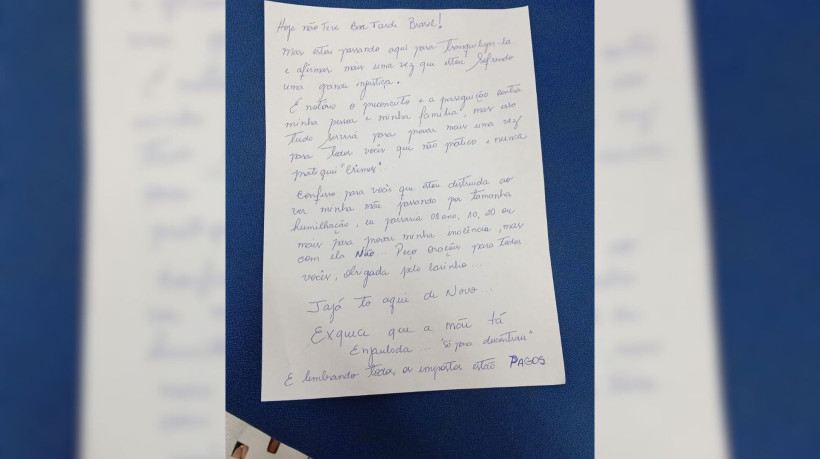 Hoje não Teve Boa Tarde Brasil!
Mas estou passando aqui para Tranquiliza-la
e afirmar mais uma vez que estou Sofrendo
uma grande injustiça.
É notório o preconceito e a perseguição contra
minha pessoa e minha família, mas isso
tudo servirá para provar mais uma vez
para todos vocês que não pratico e nunca
pratiquei "Crimes"..
Confesso para vocês que estou destruida ao
ver minha mãe passando por tamanha
humilhação, eu passaria 01 ano, 10, 20 ou
mais para provar minha inocência, mas
com ela NÃO... Peço orações para todos
vocês, obrigada pelo carinho...
Jajá to aqui de Novo...
Exquece que a mãe tá
Enjaulada... "só pra descontrair"
E lembrando todos os impostos estão PAGOS